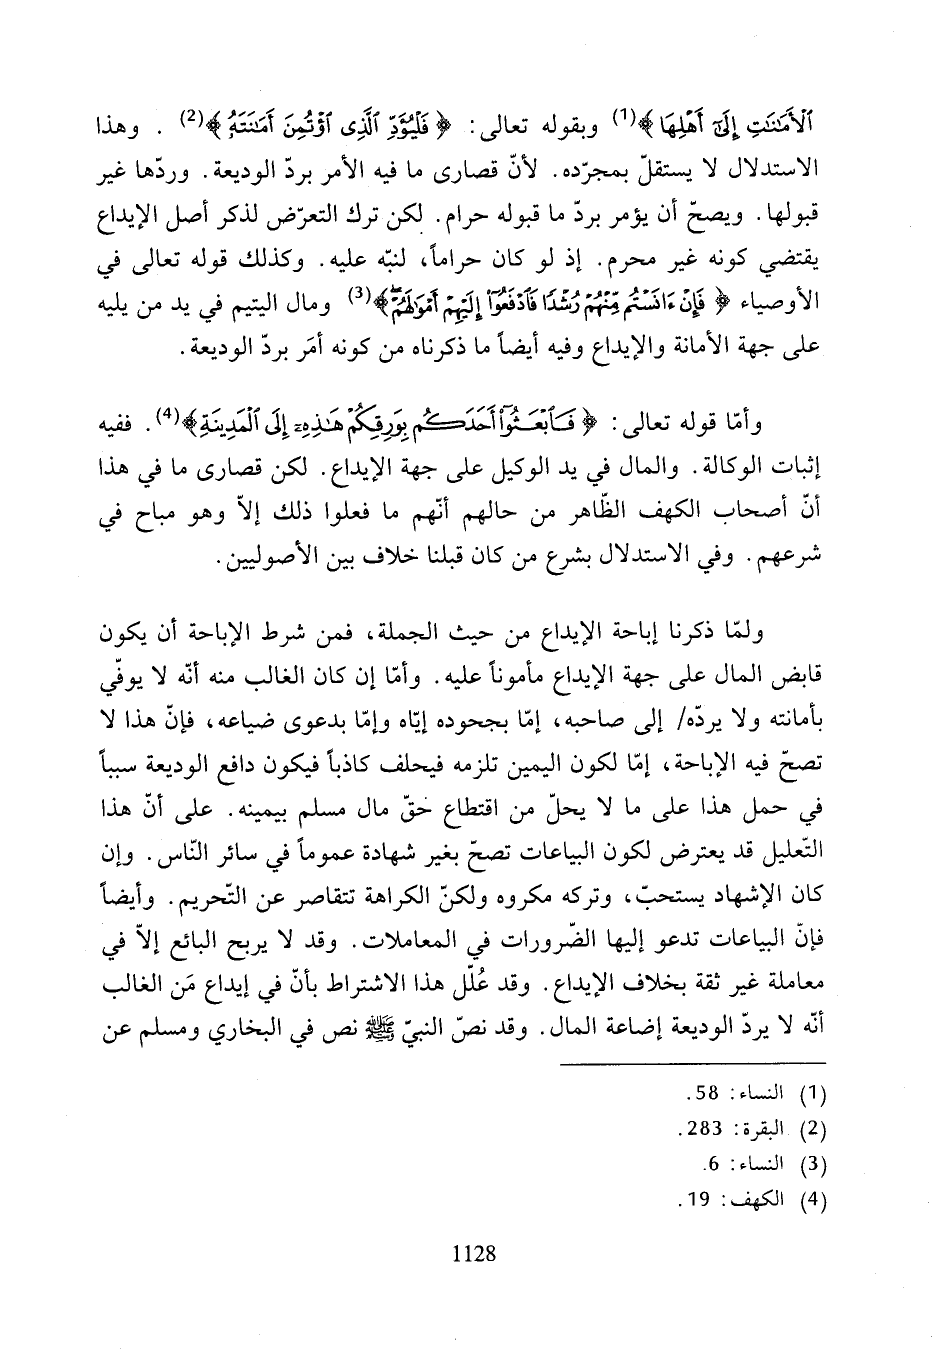 ٱلْأَمَٰنَٰتِ إِلَىٰٓ أَهْلِهَا﴾(1) وبقوله تعالى: ﴿ فَلْيُؤَدِّ ٱلَّذِى ٱؤْتُمِنَ أَمَٰنَتَهُۥ ﴾(2) . وهذا
الاستدلال لا يستقلّ بمجرّده. لأنّ قصارى ما فيه الأمر بردّ الوديعة. وردّها غير
قبولها. ويصحّ أن يؤمر بردّ ما قبوله حرام. لكن ترك التعرّض لذكر أصل الإيداع
يقتضي كونه غير محرم. إذ لو كان حراماً، لنبّه عليه. وكذلك قوله تعالى في
الأوصياء ﴿ فَإِنْ ءَانَسْتُم مِّنْهُمْ رُشْدًا فَٱدْفَعُوٓا۟ إِلَيْهِمْ أَمْوَٰلَهُمْ ۖ﴾(3) ومال اليتيم في يد من يليه
على جهة الأمانة والإيداع وفيه أيضاً ما ذكرناه من كونه أمَر بردّ الوديعة.
وأمّا قوله تعالى: ﴿ فَٱبْعَثُوٓا۟ أَحَدَكُم بِوَرِقِكُمْ هَٰذِهِۦٓ إِلَى ٱلْمَدِينَةِ﴾(4). ففيه
إثبات الوكالة. والمال في يد الوكيل على جهة الإيداع. لكن قصارى ما في هذا
أنّ أصحاب الكهف الظّاهر من حالهم أنّهم ما فعلوا ذلك إلاّ وهو مباح في
شرعهم. وفي الاستدلال بشرع من كان قبلنا خلاف بين الأصوليين.
ولمّا ذكرنا إباحة الإيداع من حيث الجملة، فمن شرط الإباحة أن يكون
قابض المال على جهة الإيداع مأموناً عليه. وأمّا إن كان الغالب منه أنّه لا يوفّي
بأمانته ولا يردّه/ إلى صاحبه، إمّا بجحوده إيّاه وإمّا بدعوى ضياعه، فإنّ هذا لا
تصحّ فيه الإباحة، إمّا لكون اليمين تلزمه فيحلف كاذباً فيكون دافع الوديعة سبباً
في حمل هذا على ما لا يحلّ من اقتطاع حَقّ مال مسلم بيمينه. على أنّ هذا
التّعليل قد يعترض لكون البياعات تصحّ بغير شهادة عموماً في سائر النّاس. وإن
كان الإشهاد يستحبّ، وتركه مكروه ولكنّ الكراهة تتقاصر عن التّحريم. وأيضاً
فإنّ البياعات تدعو إليها الضّرورات في المعاملات. وقد لا يربح البائع إلاّ في
معاملة غير ثقة بخلاف الإيداع. وقد عُلّل هذا الاشتراط بأنّ في إيداع مَن الغالب
أنّه لا يردّ الوديعة إضاعة المال. وقد نصّ النبيّ ﷺ نص في البخاري ومسلم عن
(1) النساء: 58.
(2) البقرة: 283.
(3) النساء: 6.
(4) الكهف: 19.
1128